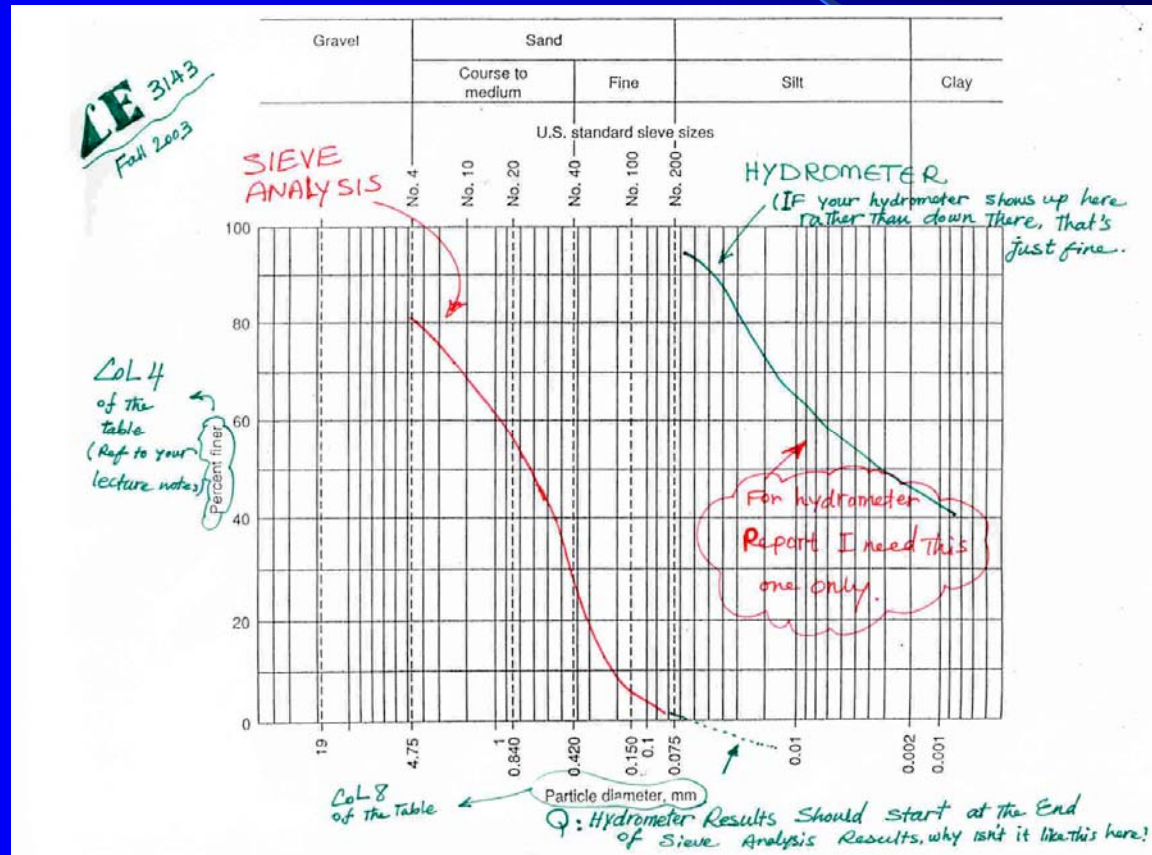 Gravel
Sand
Course to
medium
Fine
Silt
Clay
U.S. standard sieve sizes
CE 3143
Fall 2003
SIEVE
ANALYSIS
No. 4
No. 10
No. 20
No. 40
No. 100
No. 200
HYDROMETER
(IF your hydrometer shows up here
rather than down There, That's
just fine.
100
80
60
40
20
0
COL 4
of The
table
(Ref to your
lecture notes)
Percent finer
For hydrometer
Report I need This
one only.
19
4.75
1
0.840
0.420
0.150
0.1
0.075
0.01
0.002
0.001
Particle diameter, mm
COL 8
of The Table
Q: Hydrometer Results Should start at The End
of Sieve Analysis Results, why isn't it like this here?